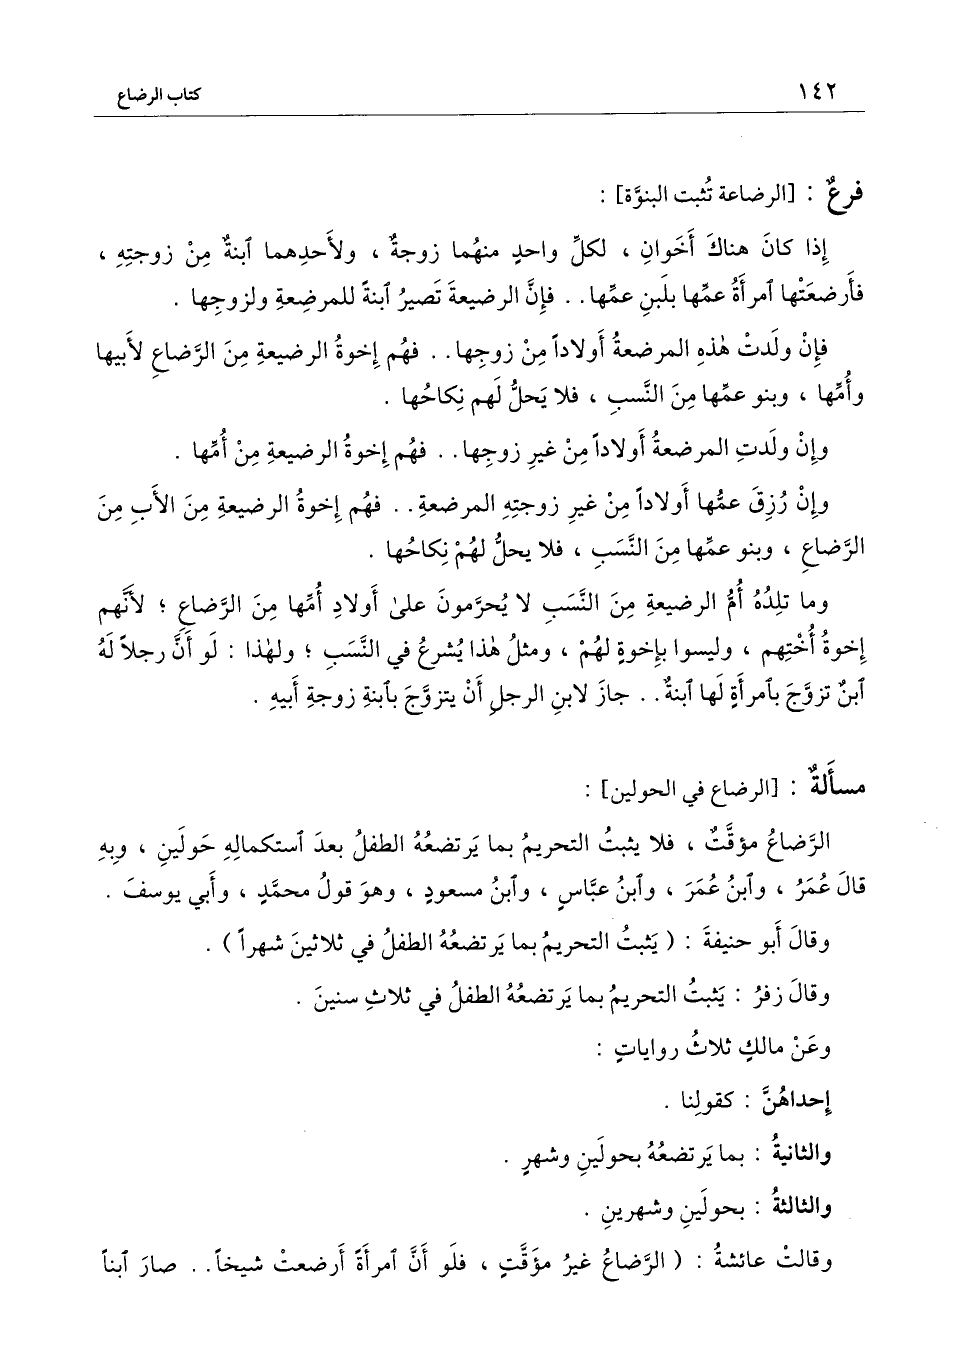 ١٤٢
كتاب الرضاع
فرعٌ : [الرضاعة تُثبت البنوَّة] :
إِذا كانَ هناكَ أَخَوانِ ، لكلِّ واحدٍ منهُما زوجةٌ ، ولأَحدِهما ٱبنةٌ مِنْ زوجتِهِ ،
فأَرضعَتْها ٱمرأَةُ عمِّها بلَبنِ عمِّها . . فإِنَّ الرضيعةَ تَصيرُ ٱبنةً للمرضِعةِ ولزوجِها .
فإِنْ ولَدتْ هٰذهِ المرضعةُ أَولاداً مِنْ زوجِها . . فهُم إِخوةُ الرضيعةِ مِنَ الرَّضاعِ لأَبيها
وأُمِّها ، وبنو عمِّها مِنَ النَّسبِ ، فلا يَحلُّ لَهم نِكاحُها .
وإِنْ ولَدتِ المرضعةُ أَولاداً مِنْ غيرِ زوجِها . . فهُم إِخوةُ الرضيعةِ مِنْ أُمِّها .
وإِنْ رُزِقَ عمُّها أَولاداً مِنْ غيرِ زوجتِهِ المرضعةِ . . فهُم إِخوةُ الرضيعةِ مِنَ الأَبِ مِنَ
الرَّضاعِ ، وبنو عمِّها مِنَ النَّسَبِ ، فلا يحلُّ لهُمْ نِكاحُها .
وما تلِدُهُ أُمُّ الرضيعةِ مِنَ النَّسَبِ لا يُحرَّمونَ علىٰ أَولادِ أُمِّها مِنَ الرَّضاعِ ؛ لأَنَّهم
إِخوةُ أُخْتِهم ، وليسوا بإِخوةٍ لهُمْ ، ومثلُ هٰذا يُشرعُ في النَّسَبِ ؛ ولهٰذا : لَو أَنَّ رجلاً لَهُ
ٱبنٌ تزوَّجَ بٱمرأَةٍ لَها ٱبنةٌ . . جازَ لابنِ الرجلِ أَنْ يتزوَّجَ بٱبنةِ زوجةِ أَبيهِ .
مسأَلةٌ : [الرضاع في الحولين] :
الرَّضاعُ مؤقَّتٌ ، فلا يثبتُ التحريمُ بما يَرتضعُهُ الطفلُ بعدَ ٱستكمالِهِ حَولَينِ ، وبِهِ
قالَ عُمَرُ ، وٱبنُ عُمَرَ ، وٱبنُ عبَّاسٍ ، وٱبنُ مسعودٍ ، وهوَ قولُ محمَّدٍ ، وأَبي يوسفَ .
وقالَ أَبو حنيفةَ : ( يَثبتُ التحريمُ بما يَرتضعُهُ الطفلُ في ثلاثينَ شهراً ) .
وقالَ زفرُ : يَثبتُ التحريمُ بما يَرتضعُهُ الطفلُ في ثلاثِ سنينَ .
وعَنْ مالكٍ ثلاثُ رواياتٍ :
إِحداهُنَّ : كقولِنا .
والثانيةُ : بما يَرتضعُهُ بحولَينِ وشهرٍ .
والثالثةُ : بحولَينِ وشهرينِ .
وقالتْ عائشةُ : ( الرَّضاعُ غيرُ مؤَقَّتٍ ، فلَو أَنَّ ٱمرأَةً أَرضعتْ شيخاً . . صارَ ٱبناً